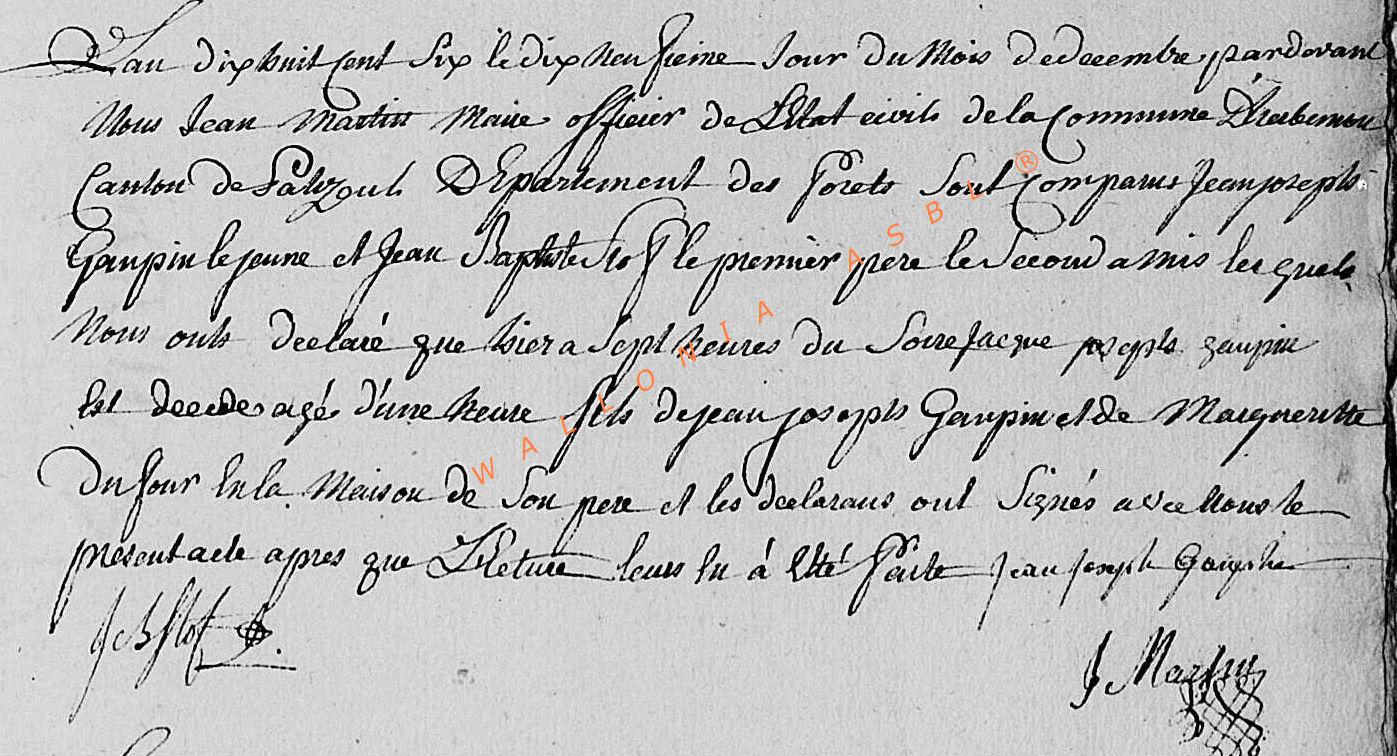 L'an dix huit Cent Six le dix neufieme Jour du Mois de decembre pardevant
Nous Jean Martin Maire officier de L'Etat civils de la Commune D'herbemon
Canton de Palizouls DEpartement des forets Sont Comparus Jean joseph
Gaupin le jeune et Jean Baptiste Stof le premier pere le Second amis les quels
Nous onts declaré que hier a Sept heures du Soire Jacque joseph gaupin
Est decedes agés d'une heure fils de jean joseph Gaupin et de Margueritte
Dufour En la Maison de Son pere et les declarans ont Signés avec Nous le
present acte apres que LEcture leurs En á Eté faite Jean Joseph Gaupin
J B Stof
J Martin
WALLONIA ASBL ®